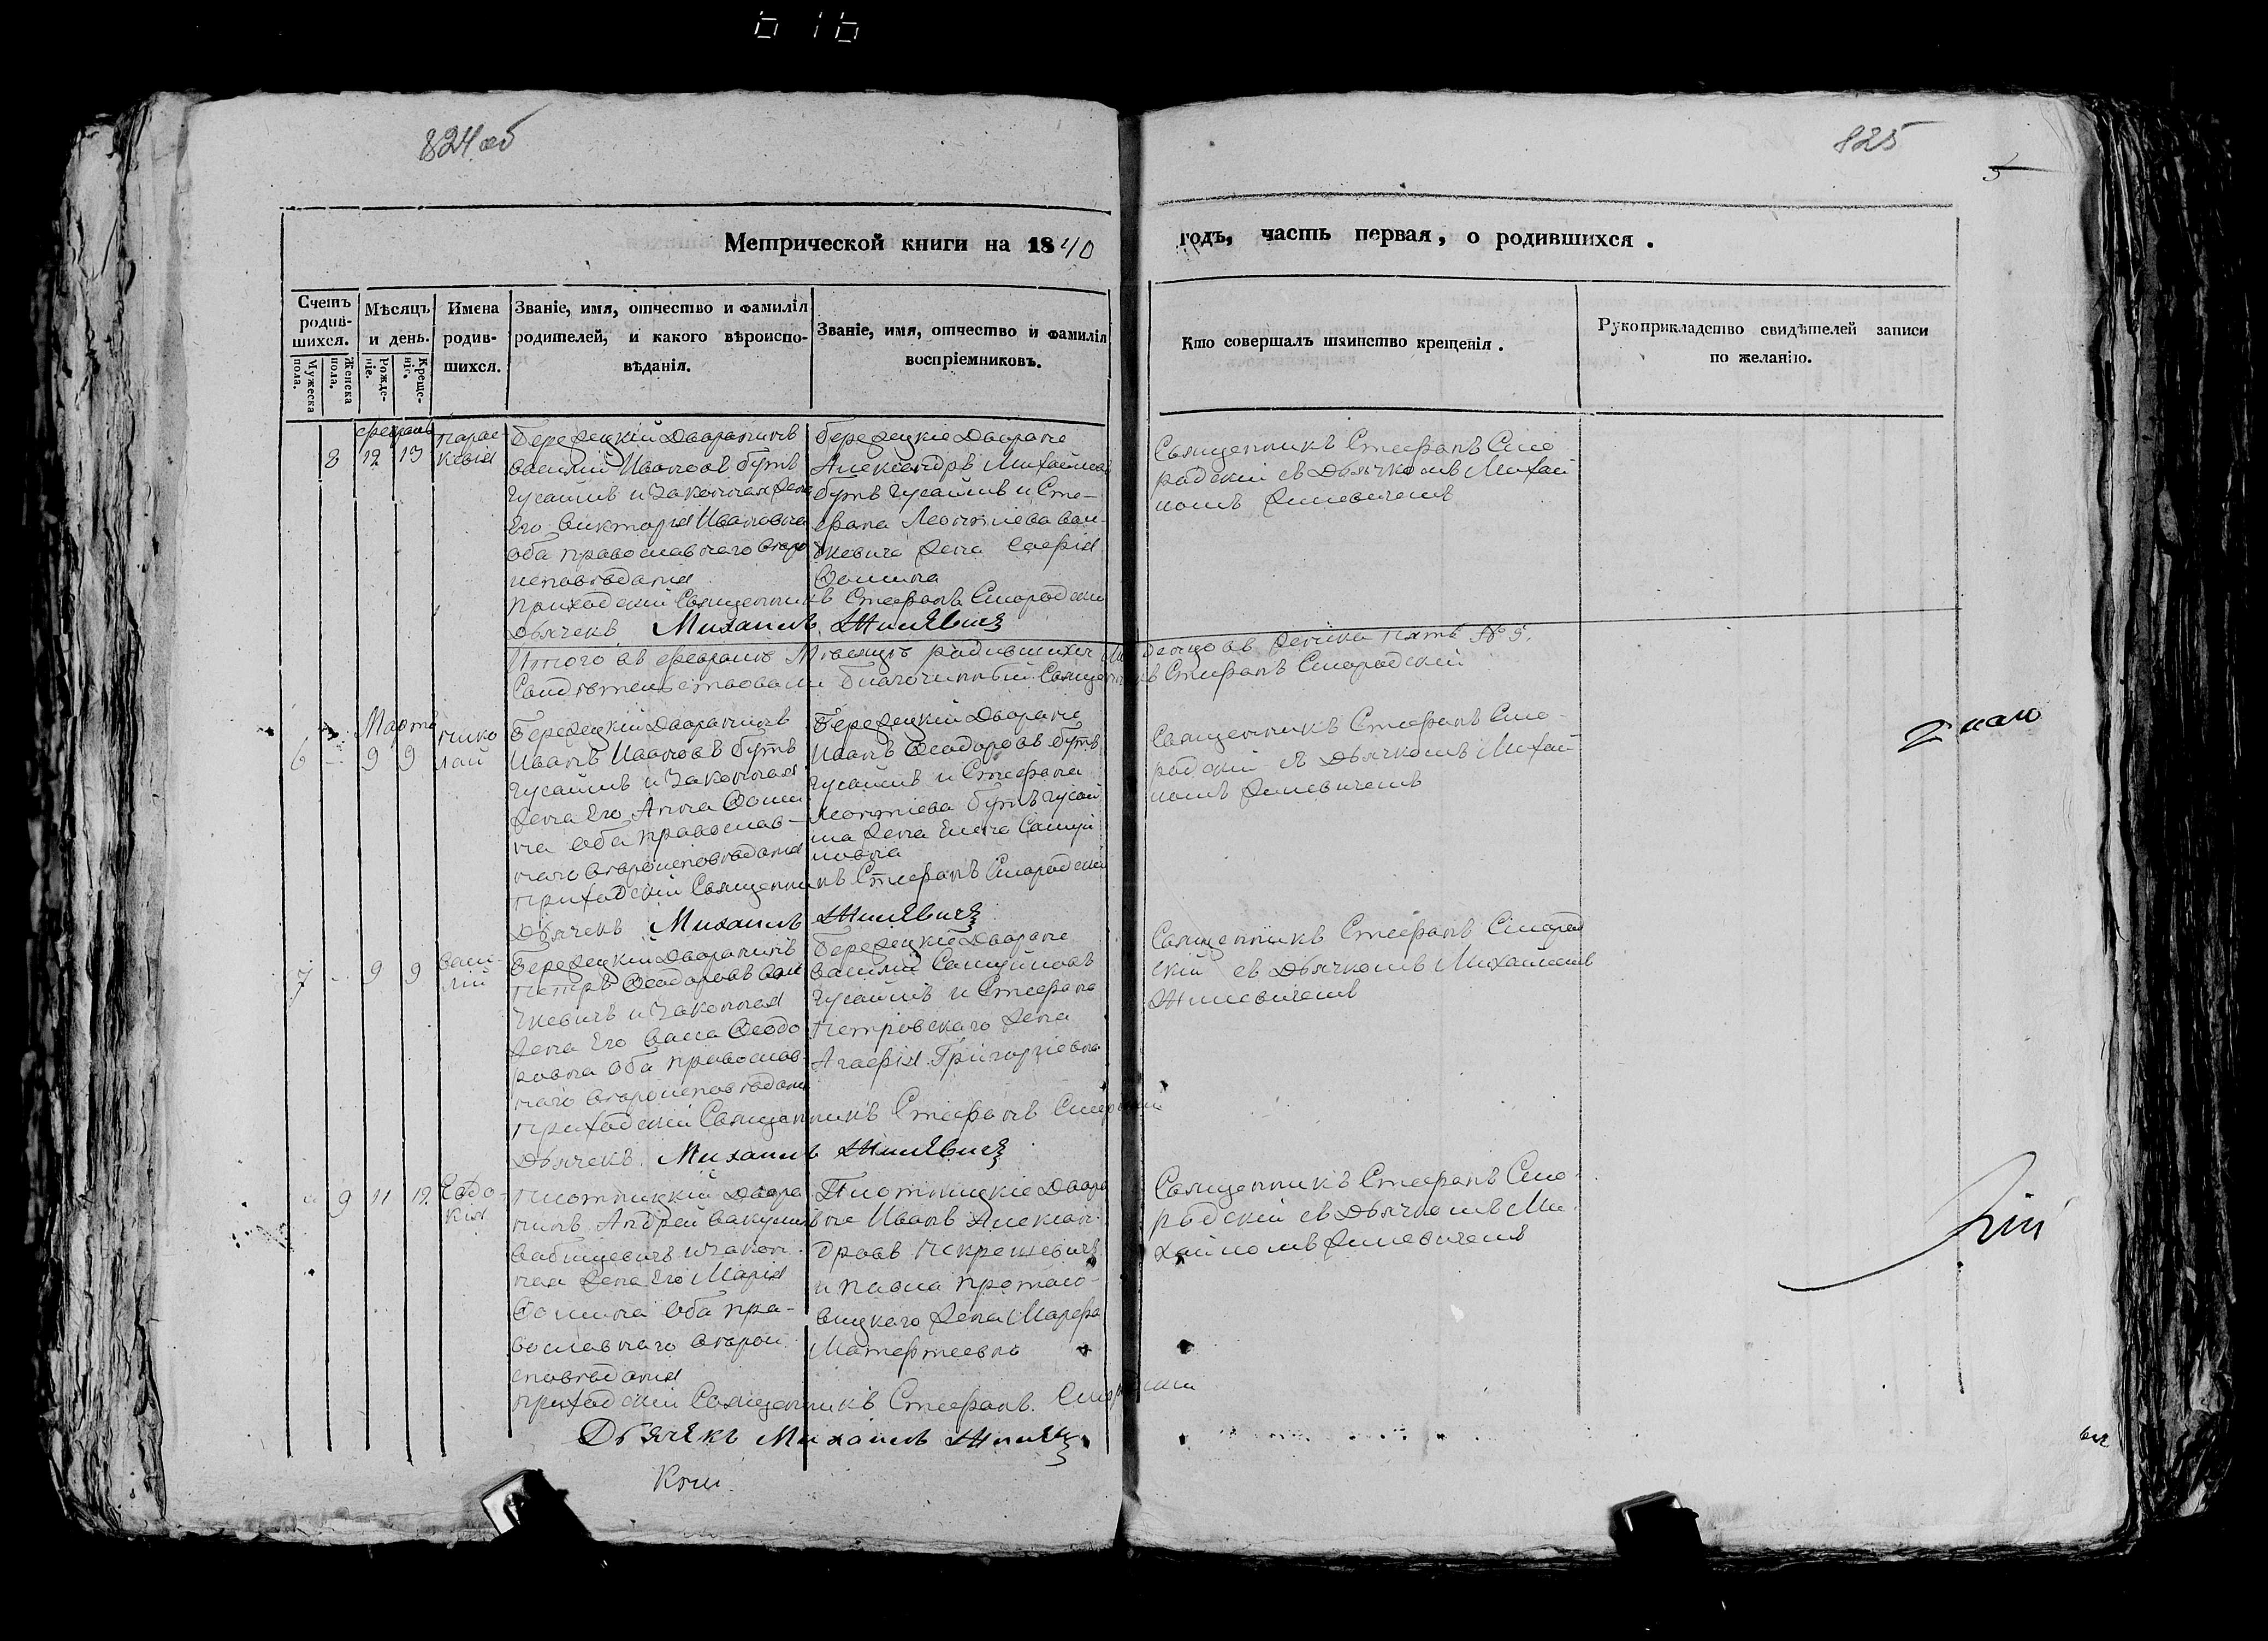 824 об
825
5
Метрической книги на 1840
годъ, часть первая, о родившихся.
Счетъ родив-шихся.
Мужеска пола.
Женска пола.
Мѣсяцъ и день.
Рожде-ніе.
Креще-ніе.
Имена родив-шихся.
Званіе, имя, отчество и фамилія
родителей, и какого вѣроиспо-
вѣданія.
Званіе, имя, отчество и фамилія
воспріемниковъ.
Кто совершалъ таинство крещенія.
Рукоприкладство свидѣтелей записи
по желанію.
февраль
8 12 13
Парас
кевія
Бережецкій Дворянинъ
Василій Ивановъ Бутъ
Гусаимъ и Законная Жена
Его Викторія Ивановна
оба православнаго вѣро
исповѣданія
Бережецкіе Дворяне
Александръ Михайловъ
Бутъ Гусаимъ и Сте-
фана Леонтіева Вои-
ткевича Жена Софія
Фомина
Священникъ Стефанъ Смо
родскій съ Дьячкомъ Михай
ломъ Жилевичемъ
Приходскій Священникъ Стефанъ Смородскій
Дьячекъ Михаилъ Жилевичъ
Итого въ февралѣ Мѣсяцѣ родившихся Младенцовъ Женска пять № 5.
Свидѣтельствовали Благочинный Священникъ Стефанъ Смородскій
Марта
6 - 9 9
Нико
лай
Бережецкій Дворянинъ
Иванъ Ивановъ Бутъ
Гусаимъ и Законная
Жена Его Анна Фоми
на оба православ-
наго вѣроисповѣданія
Бережецкій Дворяне
Иванъ Феодоровъ Бутъ
Гусаимъ и Стефана
Леонтіева Бутъ Гусаи
ма Жена Елена Самуи
ловна
Священникъ Стефанъ Смо-
родскій съ Дьячкомъ Михай
ломъ Жилевичемъ
Приходскій Священникъ Стефанъ Смородскій
Дьячекъ Михаилъ Жилевичъ
7 - 9 9
Васи-
лій
Бережецкій Дворянинъ
Петръ Феодоровъ Вои
ткевичъ и Законная
Жена Его Васса Феодо
ровна оба православ-
наго вѣроисповѣданія
Бережецкіе Дворяне
Василій Самуйловъ
Гусаимъ и Стефана
Петровскаго Жена
Агафія Григоріевна
Священникъ Стефанъ Смород
скій съ Дьячкомъ Михаиломъ
Жилевичемъ
Приходскій Священникъ Стефанъ Смородскій
Дьячекъ Михаилъ Жилевичъ
9 11 12
Евдо-
кія
Плотницкій Дворя
нинъ Андрей Вакулинъ
Бабицевичъ и закон-
ная Жена Его Марія
Фомина оба пра-
вославнаго вѣрои
сповѣданія
Плотницкіе Дворя
не Иванъ Алексан-
дровъ Некрашевичъ
и Павла Протасо-
вицкаго Жена Марфа
Матфеевна
Священникъ Стефанъ Смо-
родскій съ Дьячкомъ Ми-
хайломъ Жилевичемъ
Приходскій Священникъ Стефанъ Смородскій
Дьячекъ Михаилъ Жилевичъ